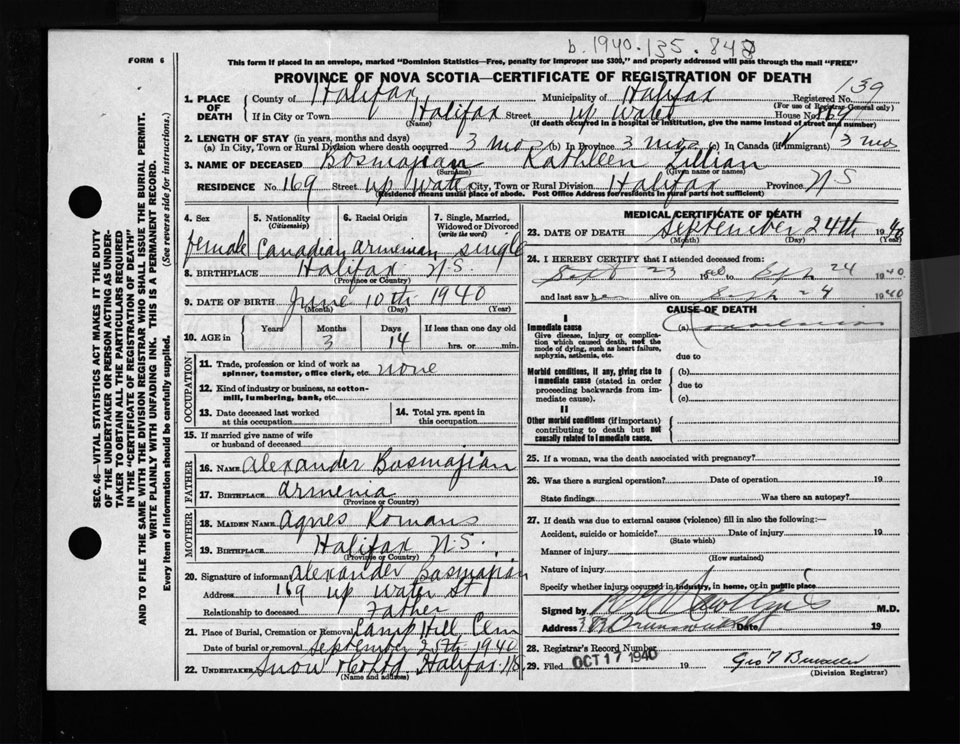 b. 1940.135.843
FORM 6
This form if placed in an envelope, marked "Dominion Statistics—Free, penalty for improper use $300," and properly addressed will pass through the mail "FREE"
PROVINCE OF NOVA SCOTIA—CERTIFICATE OF REGISTRATION OF DEATH
139
1. PLACE OF DEATH
County of Halifax Municipality of Halifax Registered No.
(For use of Registrar-General only)
If in City or Town Halifax Street up Water House No. 169
(Name) (If death occurred in a hospital or institution, give the name instead of street and number)
2. LENGTH OF STAY (in years, months and days)
(a) In City, Town or Rural Division where death occurred 3 mos (b) In Province 3 mos (c) In Canada (if immigrant) 3 mos
3. NAME OF DECEASED Bosmajian Kathleen Lillian
(Surname) (Given name or names)
RESIDENCE No. 169 Street up Water City, Town or Rural Division Halifax Province N S
(Residence means usual place of abode. Post Office Address for residents in rural parts not sufficient)
4. Sex
female
5. Nationality (Citizenship)
Canadian
6. Racial Origin
Armenian
7. Single, Married, Widowed or Divorced (write the word)
single
8. BIRTHPLACE Halifax N.S.
(Province or Country)
9. DATE OF BIRTH June 10th 1940
(Month) (Day) (Year)
10. AGE in
Years
Months 3
Days 14
If less than one day old
hrs. or min.
OCCUPATION
11. Trade, profession or kind of work as spinner, teamster, office clerk, etc. none
12. Kind of industry or business, as cotton-mill, lumbering, bank, etc.
13. Date deceased last worked at this occupation
14. Total yrs. spent in this occupation
15. If married give name of wife or husband of deceased
FATHER
16. NAME Alexander Bosmajian
17. BIRTHPLACE Armenia
(Province or Country)
MOTHER
18. MAIDEN NAME Agnes Romans
19. BIRTHPLACE Halifax N.S.
(Province or Country)
20. Signature of informant Alexander Bosmajian
Address 169 up Water St
Relationship to deceased Father
21. Place of Burial, Cremation or Removal Camp Hill Cem
Date of burial or removal September 25th 1940
22. UNDERTAKER Snow Halifax N.S
(Name and address)
MEDICAL CERTIFICATE OF DEATH
23. DATE OF DEATH September 24th 1940
(Month) (Day) (Year)
24. I HEREBY CERTIFY that I attended deceased from:
Sept 23 1940 to Sept 24 1940
and last saw her alive on Sept 24 1940
CAUSE OF DEATH
I
Immediate cause
Give disease, injury or complication which caused death, not the mode of dying, such as heart failure, asphyxia, asthenia, etc.
(a)
due to
Morbid conditions, if any, giving rise to immediate cause (stated in order proceeding backwards from immediate cause).
(b)
due to
(c)
II
Other morbid conditions (if important) contributing to death but not causally related to immediate cause.
25. If a woman, was the death associated with pregnancy?
26. Was there a surgical operation? Date of operation 19
State findings Was there an autopsy?
27. If death was due to external causes (violence) fill in also the following:—
Accident, suicide or homicide? Date of injury 19
(State which)
Manner of injury
(How sustained)
Nature of injury
Specify whether injury occurred in industry, in home, or in public place
Signed by M.D.
Address Brunswick St Date 19
28. Registrar's Record Number
29. Filed OCT 17 1940 19
(Division Registrar)
SEC. 46—VITAL STATISTICS ACT MAKES IT THE DUTY
OF THE UNDERTAKER OR PERSON ACTING AS UNDER-
TAKER TO OBTAIN ALL THE PARTICULARS REQUIRED
IN THE "CERTIFICATE OF REGISTRATION OF DEATH"
AND TO FILE THE SAME WITH THE DIVISION REGISTRAR WHO SHALL ISSUE THE BURIAL PERMIT.
WRITE PLAINLY WITH UNFADING INK. THIS IS A PERMANENT RECORD.
Every item of information should be carefully supplied. (See reverse side for instructions.)